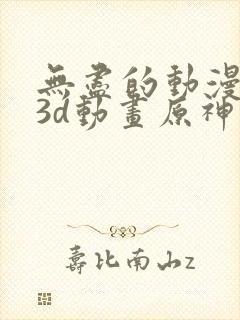 無盡的動漫
3d動畫原神
壽比南山z